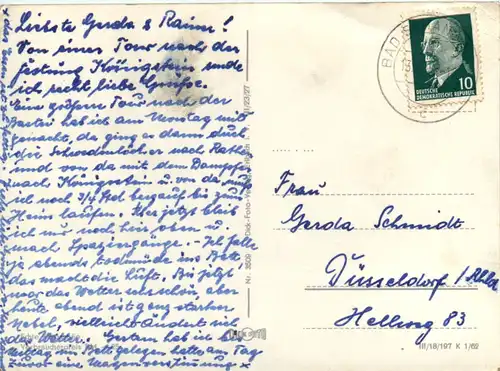 Liebste Gerda & Rainer!
Von einer Tour nach der
Festung Königstein sende
ich recht liebe Grüße.
Eine größere Tour nach der
Bastei hab ich am Montag mit
gemacht, da ging es dann durch
die Schwedenlöcher nach Rathen
und von da mit dem Dampfer
nach Königstein u von da muß
ich noch 3/4 Std bergauf bis zum
Heim laufen. Aber jetzt bleib
ich nur noch hier oben u.
mach Spaziergänge. Ich falle
ja abends todmüde ins Bett
das macht die Luft. Bis jetzt
war das Wetter uns schön aber
heute abend ist ganz starker
Nebel, vielleicht ändert sich
das Wetter. Gestern hab ich ab
Mittag im Bett gelegen hatte am Tag
zuvor eine Magenverstimmung
Verbraucherpreis
BAD
10
DEUTSCHE
DEMOKRATISCHE REPUBLIK
Frau
Gerda Schmidt
Düsseldorf / Rhld
Hellweg 83
III/18/197 K 1/69